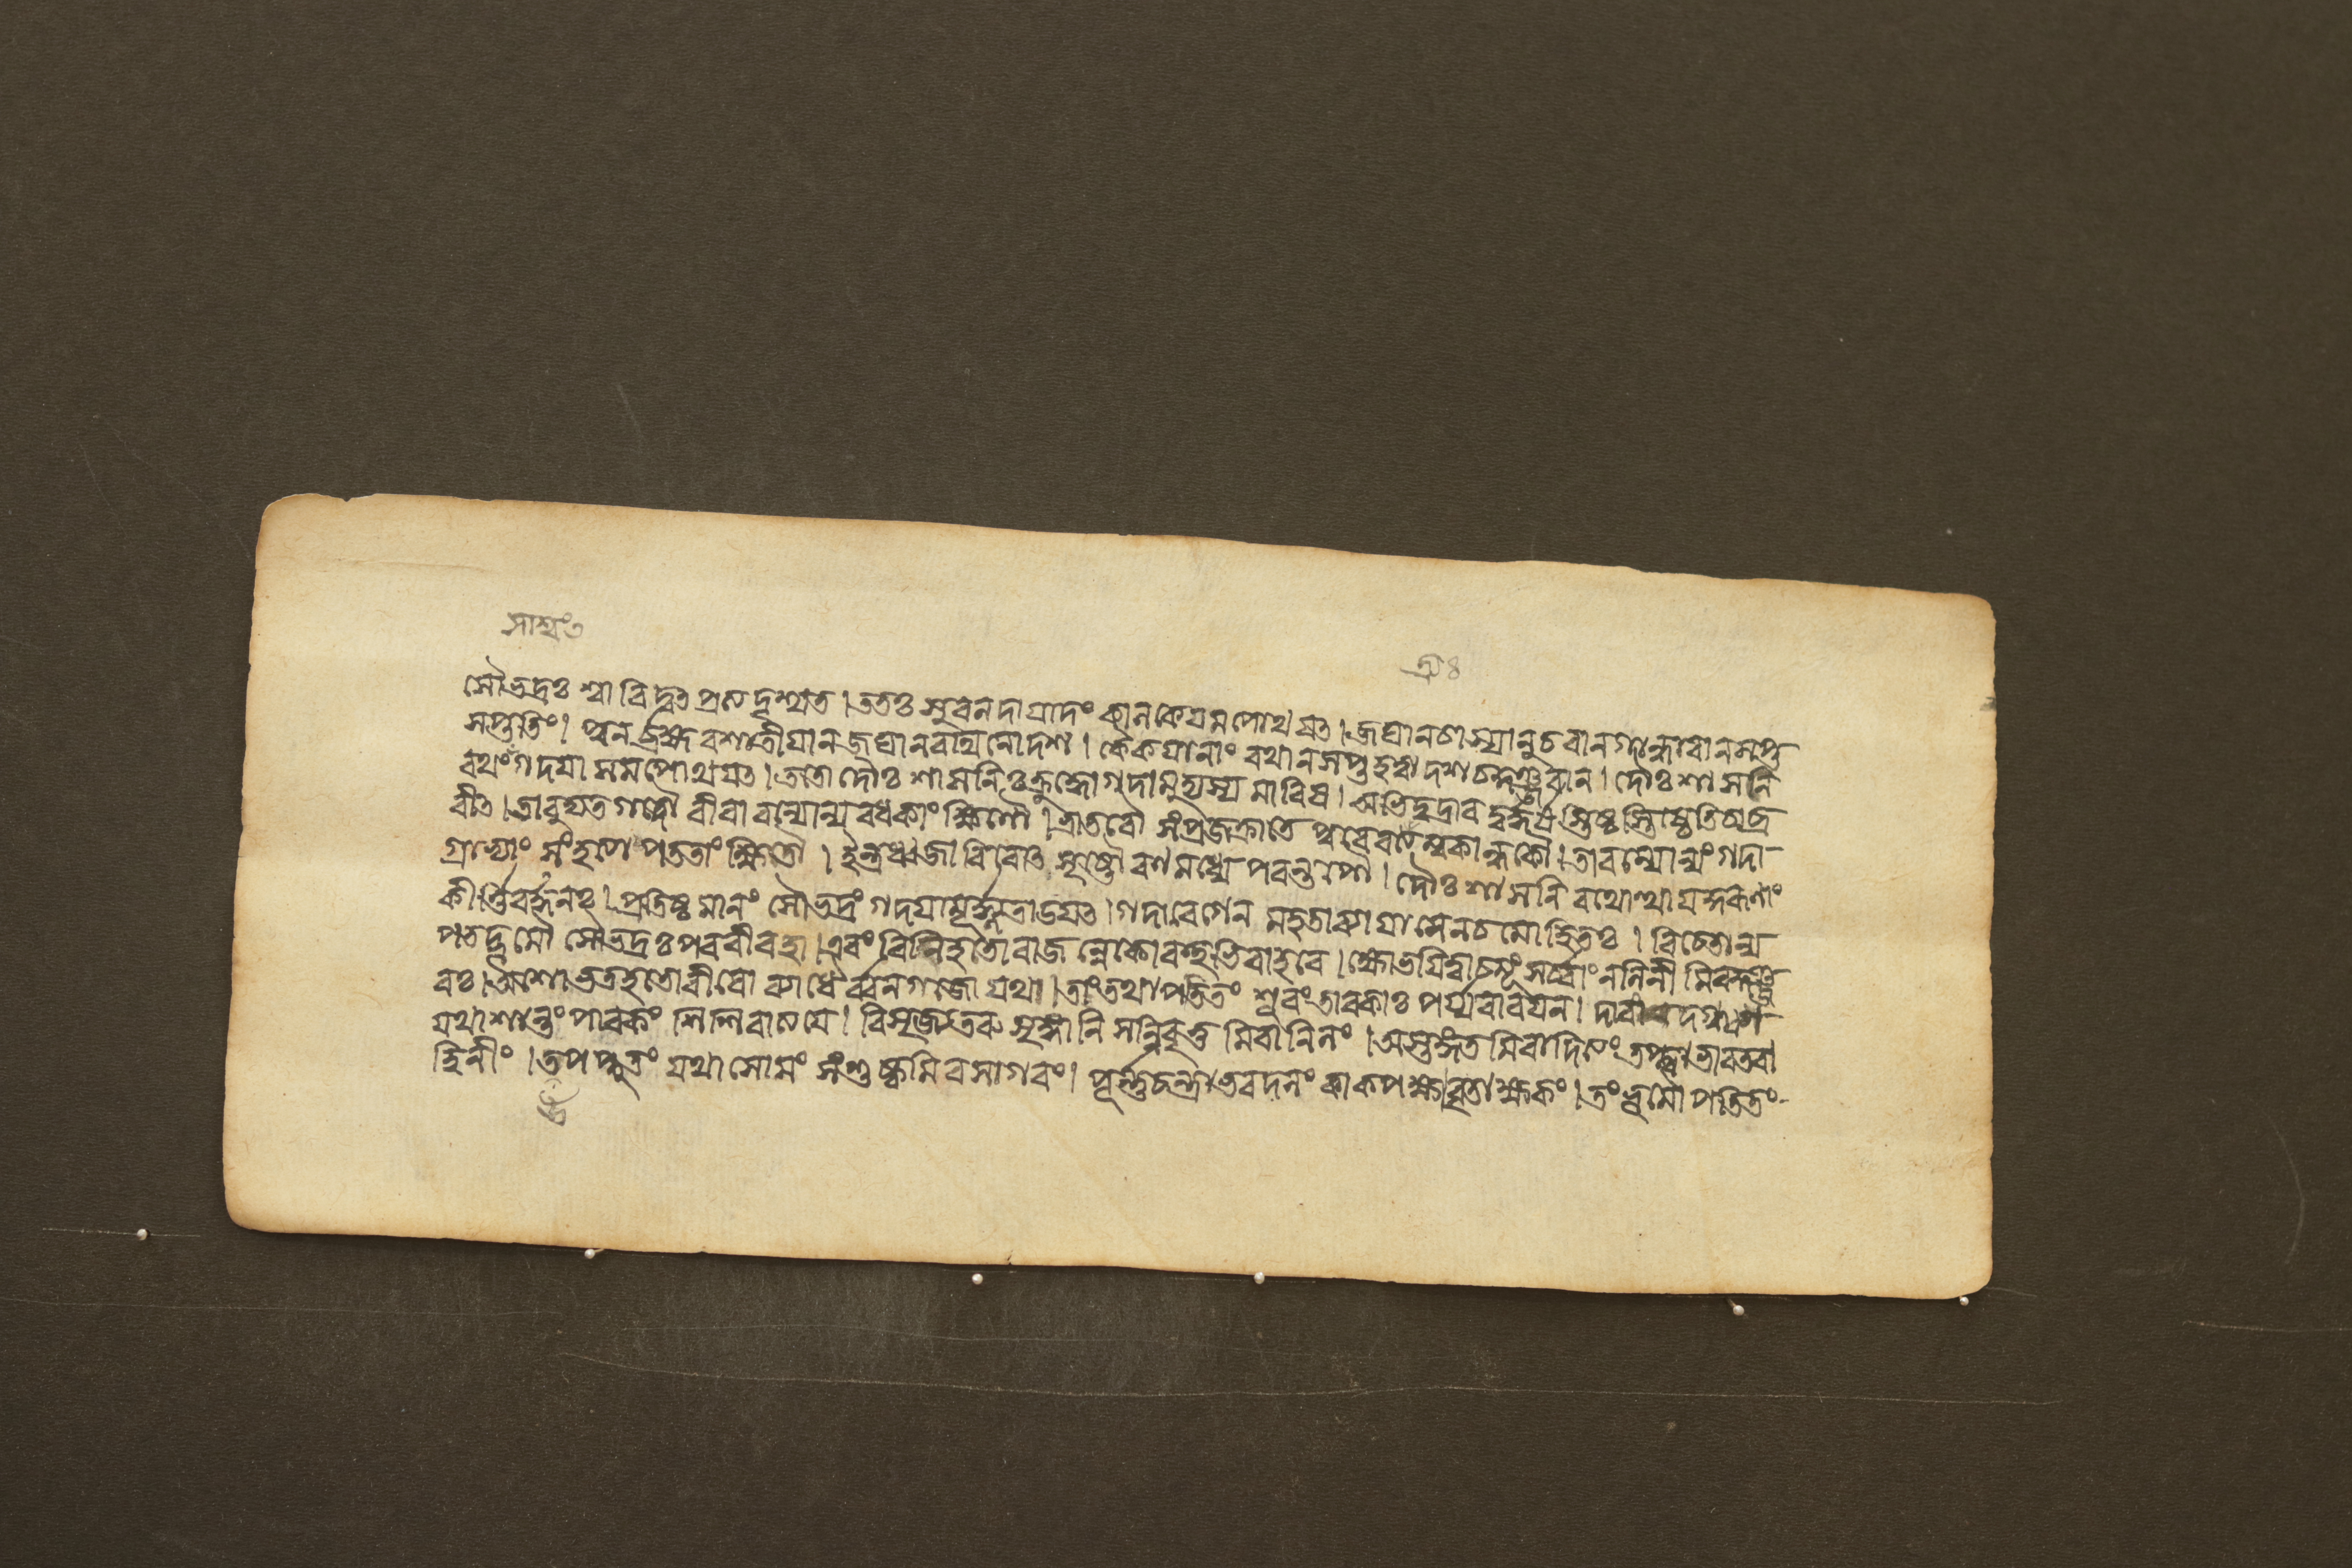 সৌভদ্রঃ শ্বাবিদ্বৎ প্রত্যদৃশ্যত । ততঃ সুবলদায়াদং কালকেয়মপোথয়ৎ । জঘানচাস্যানুচরান গান্ধারান সপ্ত
সপ্ততিং । পুনর্ব্রহ্মবশাতীয়ান জঘান রথিনোদশ । কেকয়ানাং রথান সপ্ত হত্বা দশচ কুঞ্জরান । দৌঃশাসনি
রথং গদয়া সমপোথয়ৎ । ততো দৌঃশাসনিঃ ক্রুদ্ধো গদামুদ্যম্য মারিষ । অভিদুদ্রাব সৌভদ্রং তিষ্ঠ তিষ্ঠেতি চাব্র
বীৎ । তাবুদ্যতগদৌ বীরাবন্যোন্যবধকাংক্ষিণৌ । ভ্রাতৃব্যৌ সংপ্রজহ্রাতে পুরেব ত্র্যম্বকান্ধকৌ । তাবন্যোন্যং গদা
গ্রাভ্যাং সংহত্য পতিতৌ ক্ষিতৌ । ইন্দ্রধ্বজাবিবোৎসৃষ্টৌ রণমধ্যে পরন্তপৌ । দৌঃশাসনিরথোত্থায় কুরূণাং
কীর্ত্তিবর্দ্ধনঃ । প্রতিষ্ঠমানং সৌভদ্রং গদয়া মূর্দ্ধ্ন্যতাডয়ৎ । গদাবেগেন মহতা ব্যায়ামেনচ মোহিতঃ । বিচেতা ন্য
পতদ্ভূমৌ সৌভদ্রঃ পরবীরহা । এবং বিনিহতো রাজন্নেকো বহুভিরাহবে । ক্ষোভয়িত্বা চমূং সর্ব্বাং নলিনীমিব কুঞ্জ
রঃ । অশোভত হতোবীরো ব্যাধৈর্ব্বনগজো যথা । তং তথা পতিতং শূরং তাবকাঃ পর্য্যবারয়ন । দাবং দগ্ধ্বা
যথা শান্তং পাবকং শিশিরাত্যয়ে । বিমৃজ্য তরুশৃঙ্গানি সন্নিবৃত্তমিবানিলং । অস্তঙ্গতমিবাদিত্যং তপ্ত্বা ভারতবা
হিনীং । উপপ্লুতং যথা সোমং সংশুষ্কমিব সাগরং । পূর্ণচন্দ্রাভবদনং কাকপক্ষবৃতাক্ষকং । তং ভূমৌ পতিতং